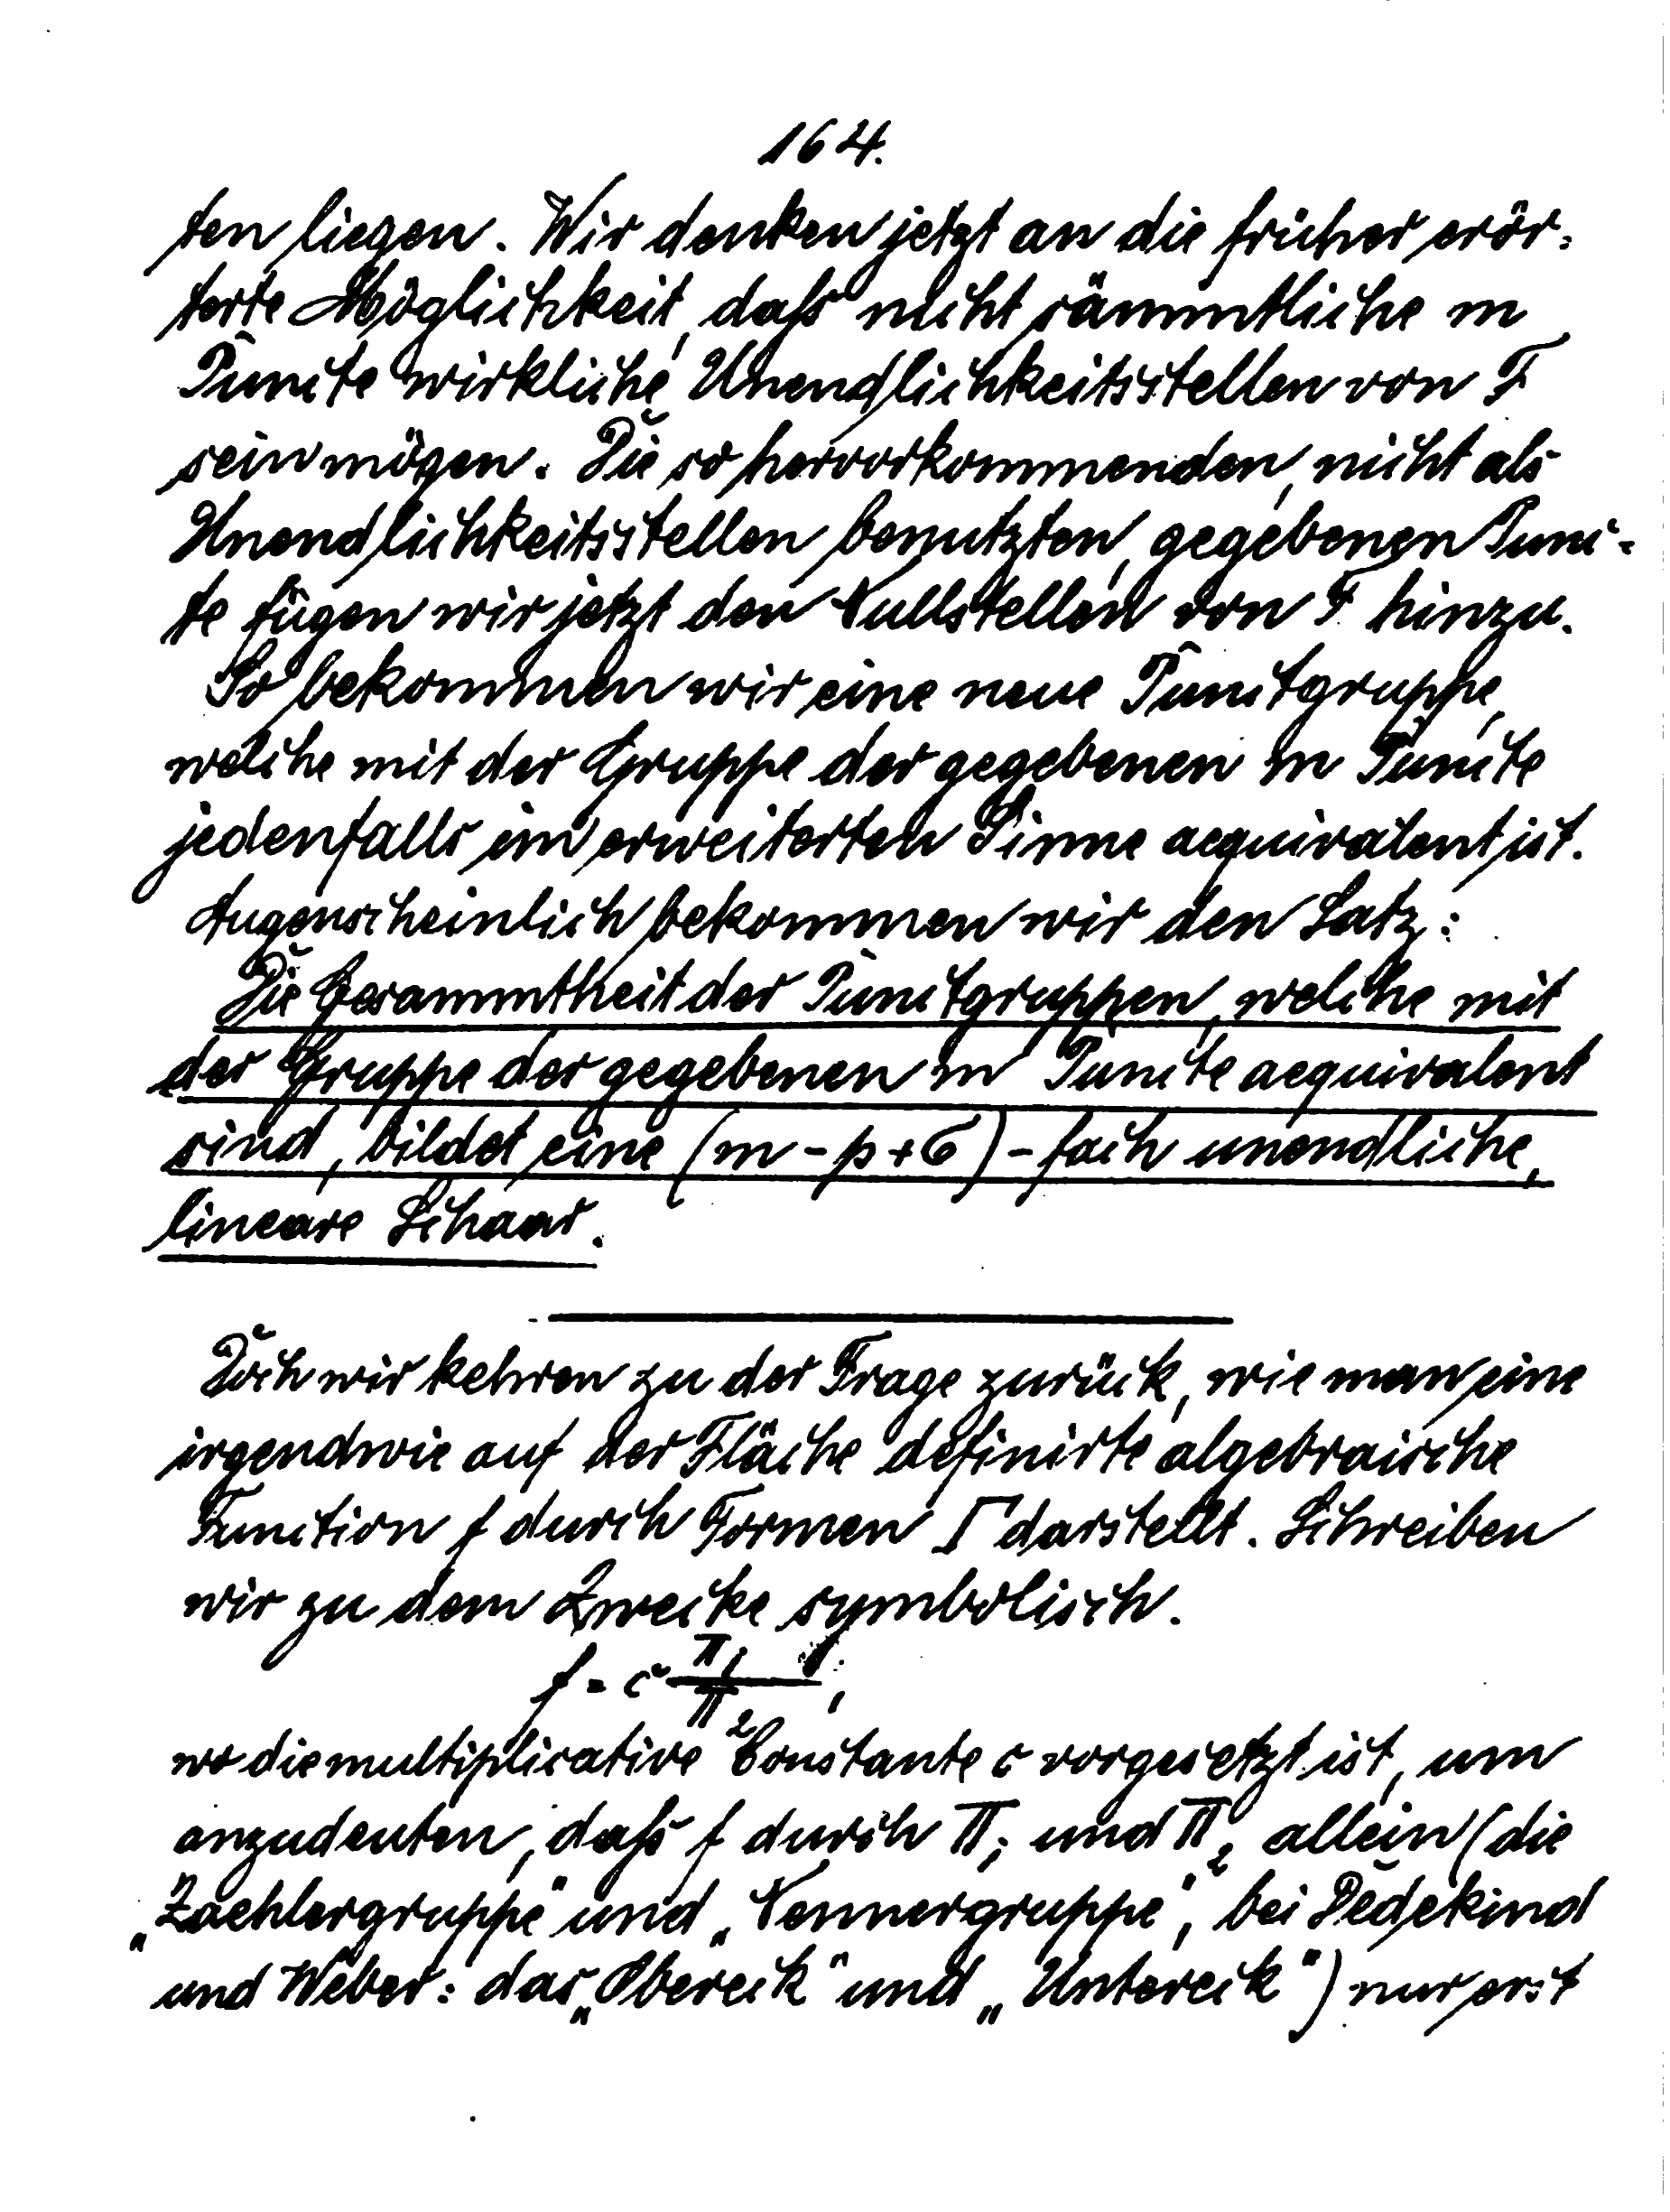 164.
ten liegen. Wir denken jetzt an die früher erör-
terte Möglichkeit, daß nicht sämmtliche m
Puncte wirkliche Unendlichkeitsstellen von F
sein mögen. Die so hervorkommenden, nicht als
Unendlichkeitsstellen benutzten, gegebenen Punc-
te fügen wir jetzt den Nullstellen von F hinzu.
So bekommen wir eine neue Punctgruppe,
welche mit der Gruppe der gegebenen m Puncte
jedenfalls im erweiterten Sinne aequivalent ist.
Augenscheinlich bekommen wir den Satz:
Die Gesammtheit der Punctgruppen, welche mit
der Gruppe der gegebenen m Puncte aequivalent
sind, bildet eine (m-p+σ)-fach unendliche,
lineare Schaar.
Doch wir kehren zu der Frage zurück, wie man eine
irgendwie auf der Fläche definirte algebraische
Function f durch Formen Γ darstellt. Schreiben
wir zu dem Zwecke symbolisch.
f = c π₁/π₂,
wo die multiplicative Constante c vorgesetzt ist, um
anzudeuten, daß f durch π₁ und π₂ allein (die
„Zaehlergruppe" und „Nennergruppe", bei Dedekind
und Weber: das „Obereck" und „Untereck") nur erst